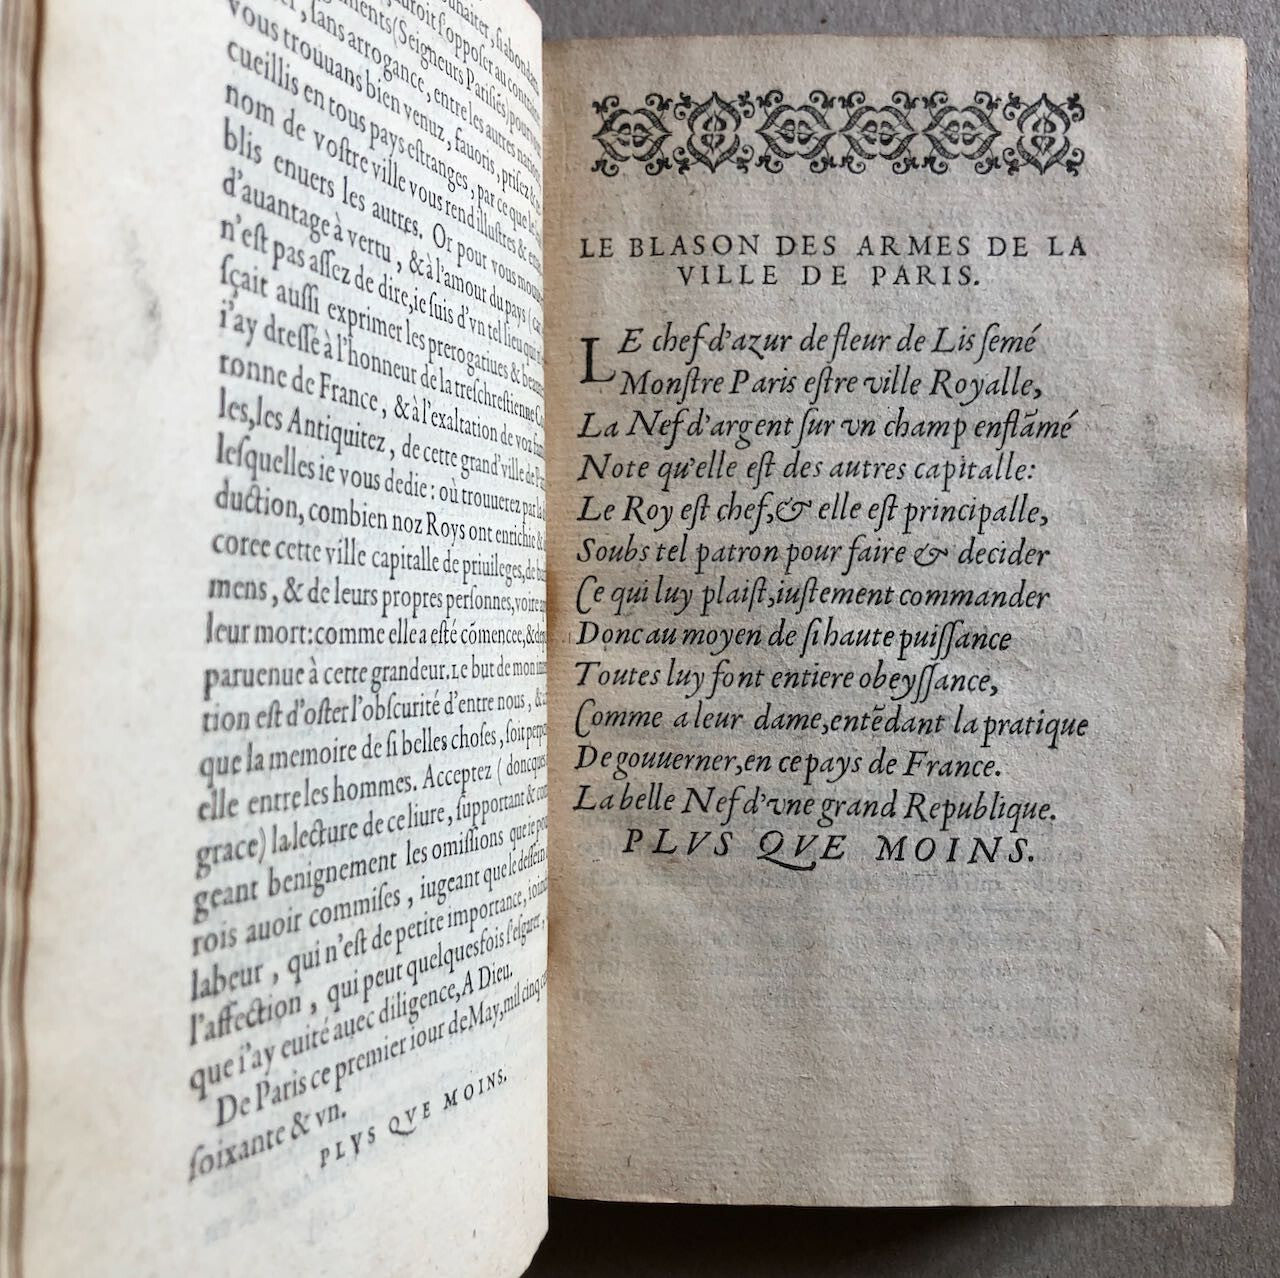 ouhaiter, si abondam
auroit s'opposer au contraire
ments (Seigneurs Parisiēs) pour
, sans arrogance, entre les autres nations
vous trouuans bien venuz, fauoris, prisez &
cueillis en tous pays estranges, par ce que le
nom de vostre ville vous rend illustres &
blis enuers les autres. Or pour vous
d'auantage à vertu, & à l'amour du pays (car
n'est pas assez de dire, ie suis d'vn tel lieu qui
sçait aussi exprimer les prerogatiues &
i'ay dressé à l'honneur de la treschrestienne Co
ronne de France, & à l'exaltation de voz
les, les Antiquitez, de cette grand' ville de
lesquelles ie vous dedie: où trouuerez par la
duction, combien noz Roys ont enrichie &
coree cette ville capitalle de priuileges, de
mens, & de leurs propres personnes, voire
leur mort: comme elle a esté cōmencee, &
paruenue à cette grandeur. Le but de mon
tion est d'oster l'obscurité d'entre nous, &
que la memoire de si belles choses, soit
elle entre les hommes. Acceptez (doncques
grace) la lecture de ce liure, supportant &
geant benignement les omissions que ie
rois auoir commises, iugeant que le dessein
labeur, qui n'est de petite importance,
l'affection, qui peut quelquesfois s'esgarer,
que i'ay euité auec diligence, A Dieu.
De Paris ce premier iour de May, mil cinq
soixante & vn.
PLVS QVE MOINS.
LE BLASON DES ARMES DE LA
VILLE DE PARIS.
LE chef d'azur de fleur de Lis semé
Monstre Paris estre ville Royalle,
La Nef d'argent sur vn champ enflāmé
Note qu'elle est des autres capitalle:
Le Roy est chef, & elle est principalle,
Soubs tel patron pour faire & decider
Ce qui luy plaist, iustement commander
Donc au moyen de si haute puissance
Toutes luy font entiere obeyssance,
Comme a leur dame, entēdant la pratique
De gouuerner, en ce pays de France.
La belle Nef d'vne grand Republique.
PLVS QVE MOINS.